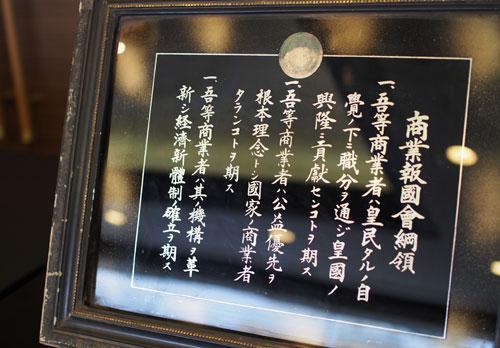 商業報國會綱領
一、吾等商業者ハ皇民タルノ自
覺ノ下ニ職分ヲ通ジ皇國ノ
興隆ニ貢獻センコトヲ期ス
一、吾等商業者ハ公益優先ヲ
根本理念トシ國家ノ商業者
タランコトヲ期ス
一、吾等商業者ハ其ノ機構ヲ革
新シ経濟新體制ノ確立ヲ期ス